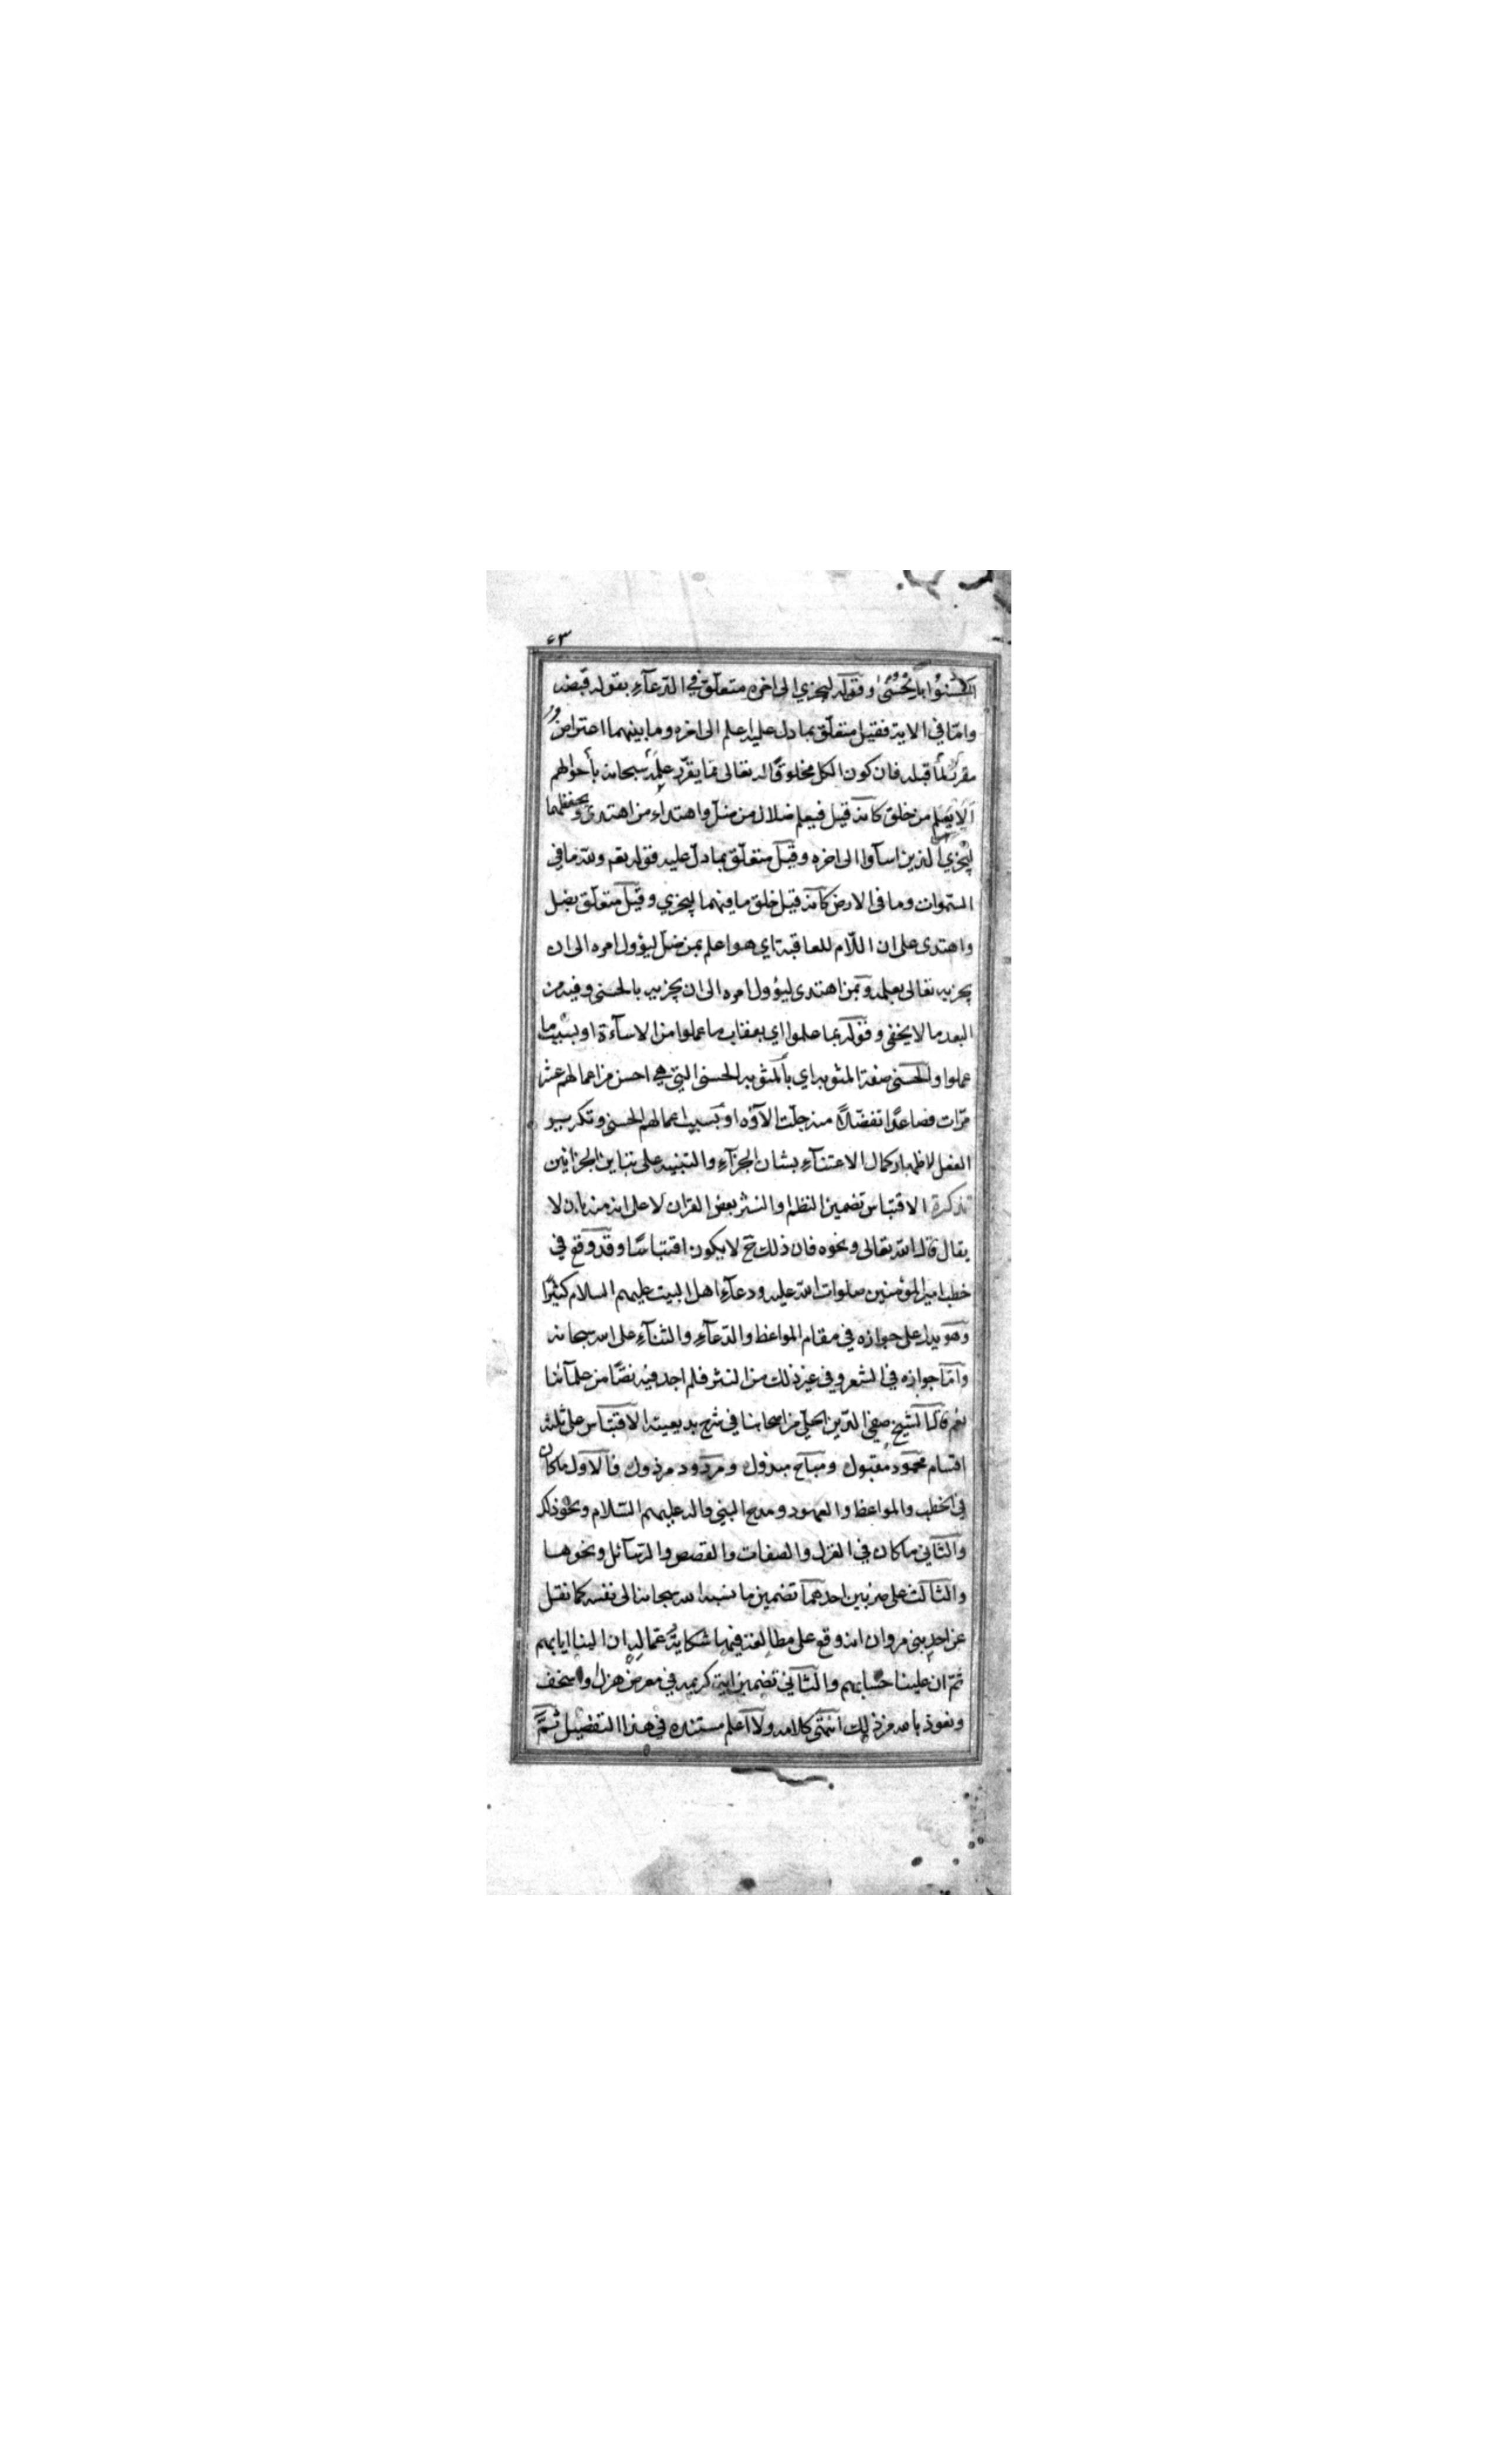 ٤٣
احسنوا بالحسنى وقوله ليجزي الى اخره متعلق في الدعآء بقوله قبضه
وامّا في الاية فقيل متعلّق بمادل عليه اعلم الى اخره وما بينهما اعتراض
مقرر لما قبله فان كون الكل مخلوقا له تعالى مما يقرّر علمه سبحانه بأحوالهم
ألا يعلم من خلق كانه قيل فيعلم ضلال من ضلّ واهتداء من اهتدى ويحفظهما
ليجزي الذين اسآوا الى اخره وقيل متعلّق بمادلّ عليه قوله تعـ ولله ما في
السّموات وما في الارض كانه قيل خلق ما فيهما ليجزي وقيل متعلّق بضل
واهتدى على ان اللّام للعاقبة اي هو اعلم بمن ضلّ ليؤول امره الى ان
يجزيه تعالى بعمله وبمن اهتدى ليؤول امره الى ان يجزيه بالحسنى وفيه من
البعد ما لا يخفى وقوله بما عملوا اي بعقاب ما عملوا من الاسآءة او بسبب ما
عملوا والحسنى صفة المثوبة اي بالمثوبة الحسنى التي هي احسن من اعمالهم عشر
مرّات فصاعدًا تفضّلاً منه جلّت الآؤه او بسبب اعمالهم الحسنى وتكرير
الفعل لاظهار كمال الاعتنآء بشان الجزآء والتنبيه على تباين الجزائين
تذكرة الاقتباس تضمين النظم والنثر بعض القران لا على انه منه بان لا
يقال قال الله تعالى ونحوه فان ذلك ح لا يكون اقتباسًا وقد وقع في
خطب امير المؤمنين صلوات الله عليه ودعآء اهل البيت عليهم السلام كثيرًا
وهو يدل على جوازه في مقام المواعظ والدّعآء والثنآء على الله سبحانه
وامّا جوازه في الشعر وفي غير ذلك من النثر فلم اجد فيه نصًّا من علمآئنا
نعم قال الشيخ صفي الدّين الحلّي من اصحابنا في شرح بديعيته الاقتباس على ثلثة
اقسام محمود مقبول ومباح مبذول ومردود مرذول فالاول ما كان
في الخطب والمواعظ والعهود ومدح النبي واله عليهم السّلام ونحو ذلك
والثاني ما كان في الغزل والصفات والقصص والرسآئل ونحوها
والثالث على ضربين احدهما تضمين ما نسبه الله سبحانه الى نفسه كما نقل
عن احد بني مروان انه وقع على مطالعة فيها شكاية عماله ان الينا ايابهم
ثمّ ان علينا حسابهم والثاني تضمين اية كريمة في معرض هزل وسخف
ونعوذ بالله من ذلك انتهى كلامه ولا اعلم مستنده في هذا التفصيل ثمّ